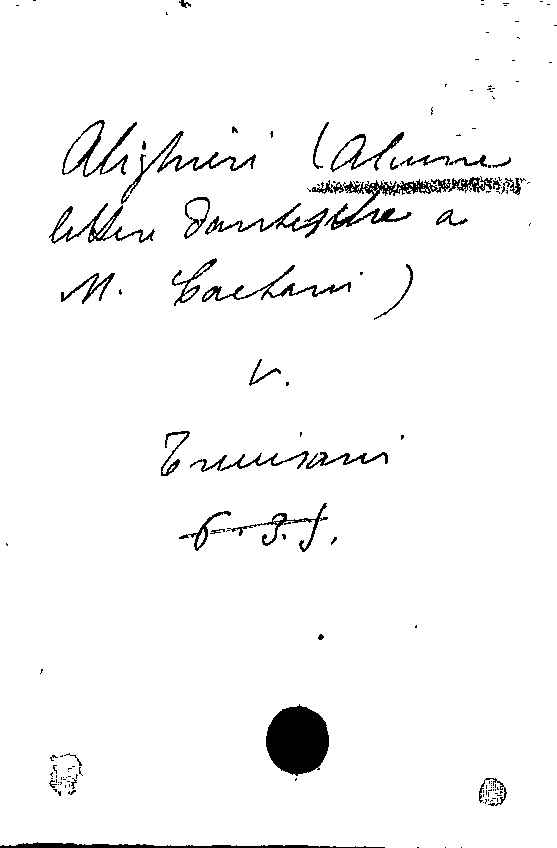 Alighieri (Alcune
lettere Dantesche a
M. Caetani)
V.
Trevisani